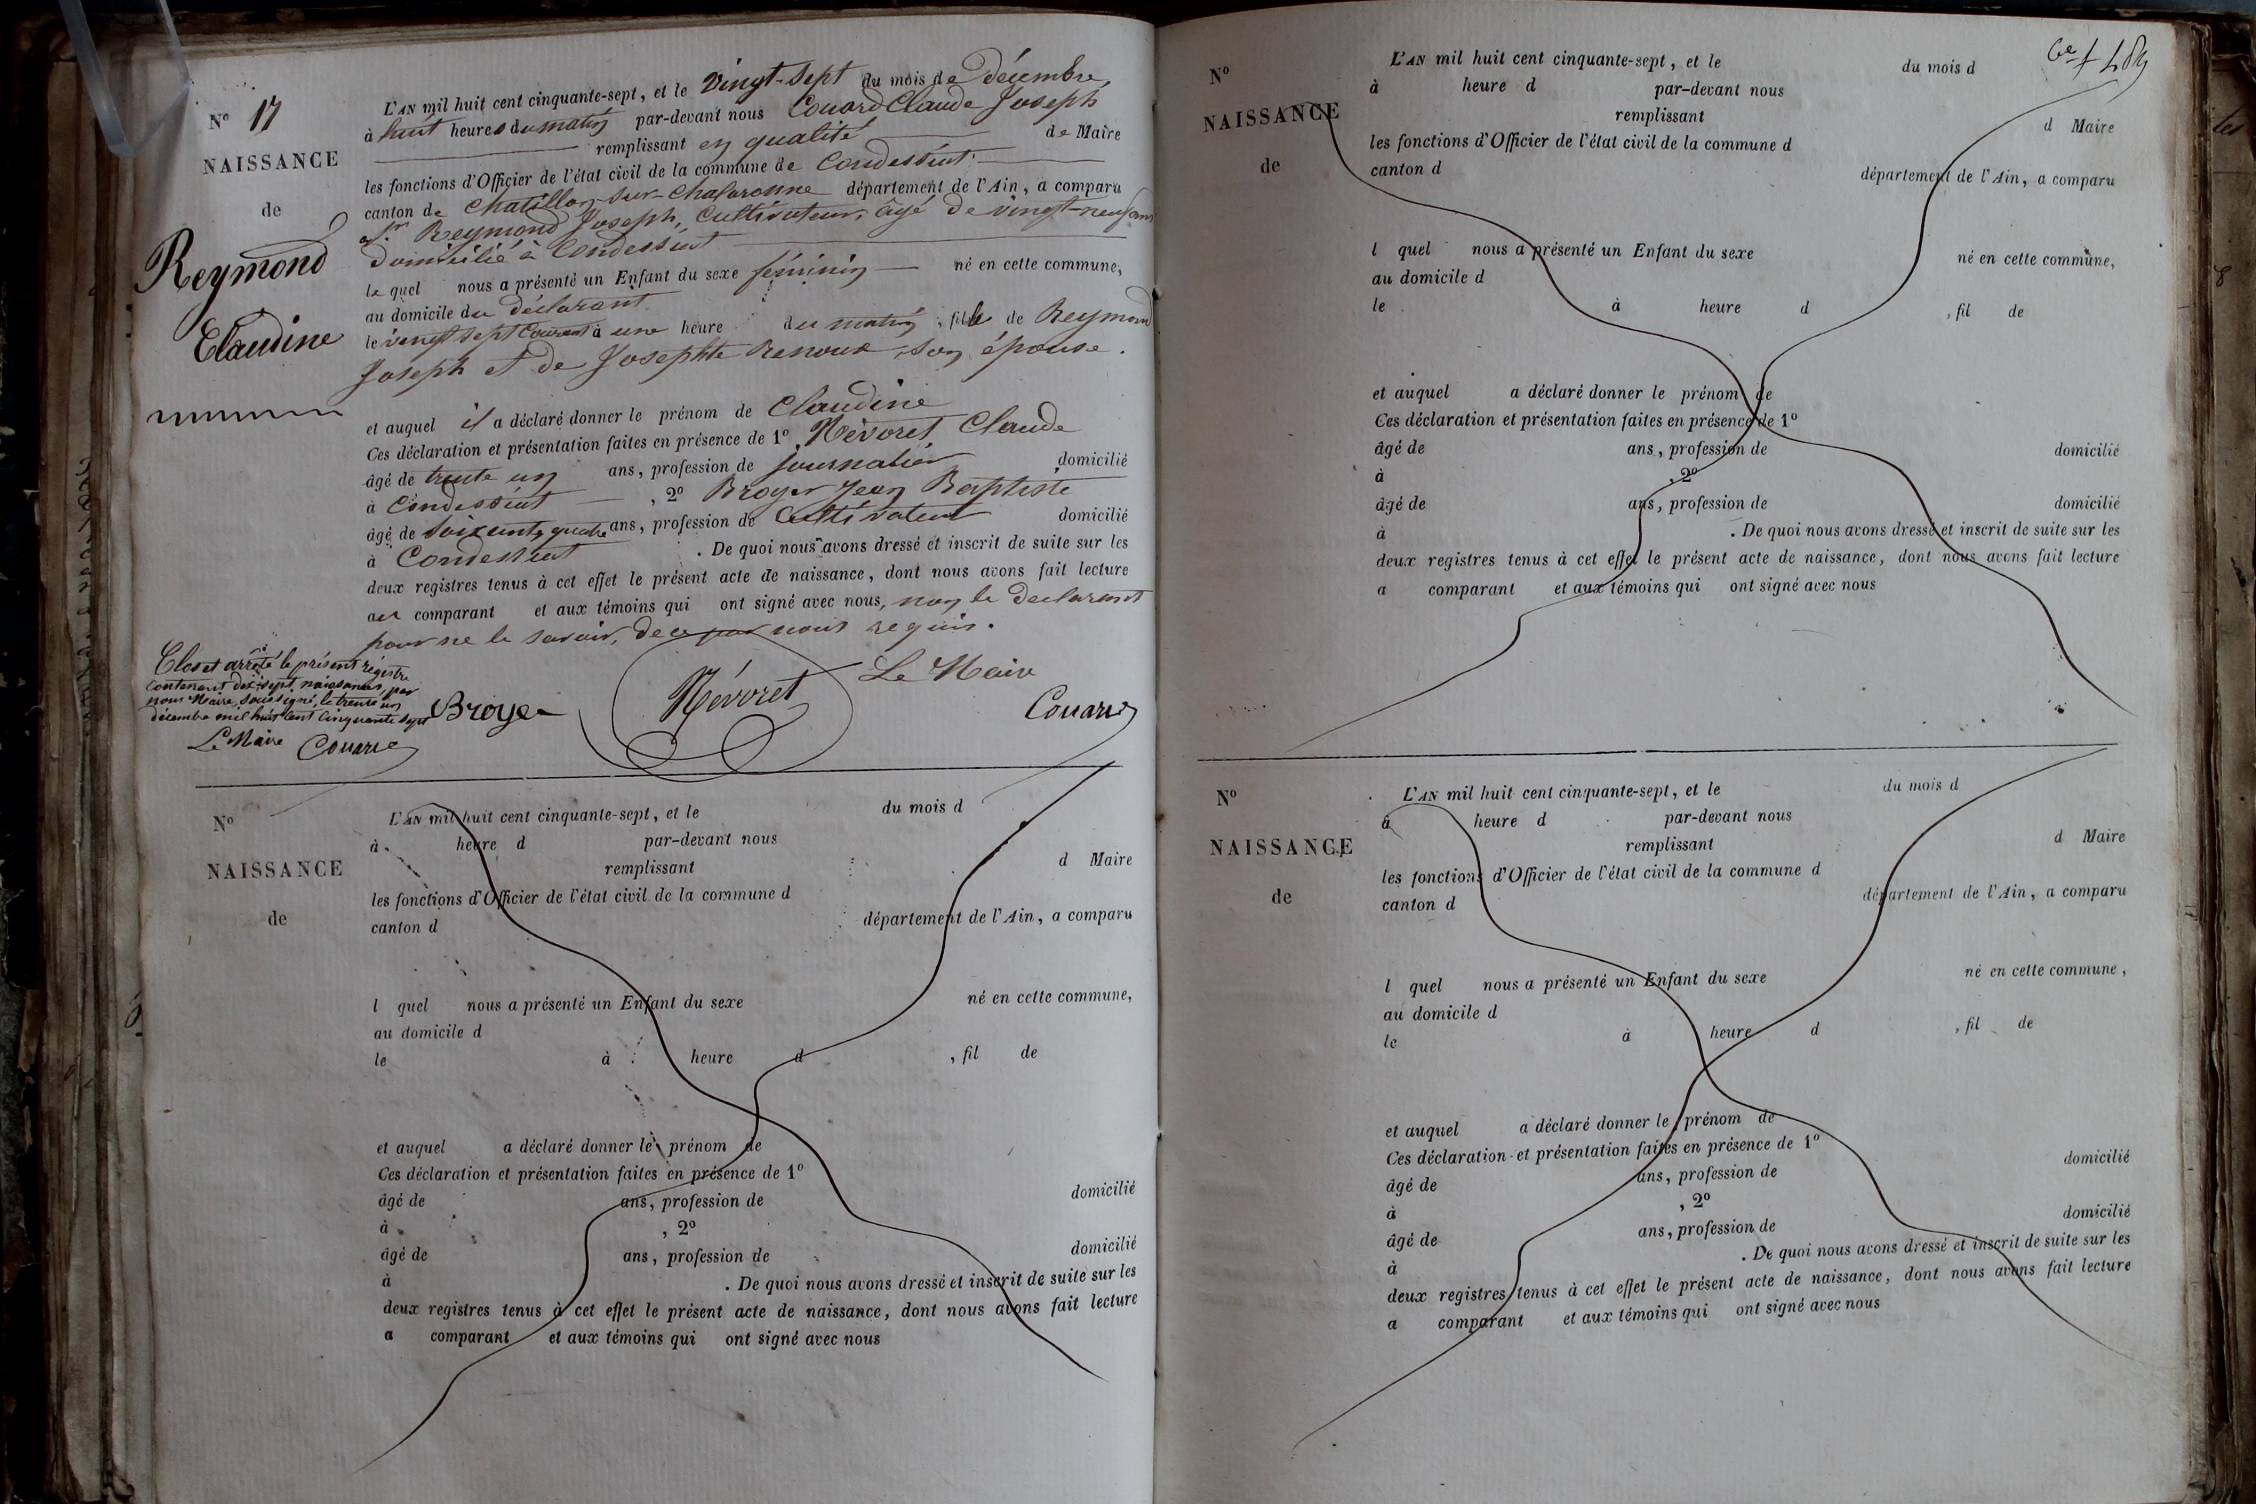 N° 17
NAISSANCE
de
Reymond
Claudine
L'AN mil huit cent cinquante-sept, et le vingt-sept du mois de décembre
à huit heures du matin par-devant nous Couard Claude Joseph
remplissant en qualité de Maire
les fonctions d'Officier de l'état civil de la commune de Condessiat
canton de Chatillon-sur-Chalaronne département de l'Ain, a comparu
Sr Reymond Joseph, cultivateur, âgé de vingt-neuf ans
domicilié à Condessiat
le quel nous a présenté un Enfant du sexe féminin né en cette commune,
au domicile du déclarant
le vingt sept courant à une heure du matin, fille de Reymond
Joseph et de Josephte Renoux, son épouse.
et auquel il a déclaré donner le prénom de Claudine
Ces déclaration et présentation faites en présence de 1° Névoret, Claude
âgé de trente un ans, profession de journalier domicilié
à Condessiat, 2° Broyer Jean Baptiste
âgé de soixante quatre ans, profession de Cultivateur domicilié
à Condessiat. De quoi nous avons dressé et inscrit de suite sur les
deux registres tenus à cet effet le présent acte de naissance, dont nous avons fait lecture
au comparant et aux témoins qui ont signé avec nous, non le déclarant
pour ne le savoir, de ce par nous requis.
Clos et arrêté le présent régistre
contenant dix-sept naissances, par
nous Maire, soussigné, le trente un
décembre mil huit cent cinquante sept
Le Maire Couard
Broyer Névoret Le Maire
Couard
N°
NAISSANCE
de
L'AN mil huit cent cinquante-sept, et le du mois d
à heure d par-devant nous
remplissant d Maire
les fonctions d'Officier de l'état civil de la commune d
canton d département de l'Ain, a comparu
l quel nous a présenté un Enfant du sexe né en cette commune,
au domicile d
le à heure d , fil de
et auquel a déclaré donner le prénom de
Ces déclaration et présentation faites en présence de 1°
âgé de ans, profession de domicilié
à , 2°
âgé de ans, profession de domicilié
à . De quoi nous avons dressé et inscrit de suite sur les
deux registres tenus à cet effet le présent acte de naissance, dont nous avons fait lecture
a comparant et aux témoins qui ont signé avec nous
N°
NAISSANCE
de
L'AN mil huit cent cinquante-sept, et le du mois d
à heure d par-devant nous
remplissant d Maire
les fonctions d'Officier de l'état civil de la commune d
canton d département de l'Ain, a comparu
l quel nous a présenté un Enfant du sexe né en cette commune,
au domicile d
le à heure d , fil de
et auquel a déclaré donner le prénom de
Ces déclaration et présentation faites en présence de 1°
âgé de ans, profession de domicilié
à , 2°
âgé de ans, profession de domicilié
à . De quoi nous avons dressé et inscrit de suite sur les
deux registres tenus à cet effet le présent acte de naissance, dont nous avons fait lecture
a comparant et aux témoins qui ont signé avec nous
N°
NAISSANCE
de
L'AN mil huit cent cinquante-sept, et le du mois d
à heure d par-devant nous
remplissant d Maire
les fonctions d'Officier de l'état civil de la commune d
canton d département de l'Ain, a comparu
l quel nous a présenté un Enfant du sexe né en cette commune,
au domicile d
le à heure d , fil de
et auquel a déclaré donner le prénom de
Ces déclaration et présentation faites en présence de 1°
âgé de ans, profession de domicilié
à , 2°
âgé de ans, profession de domicilié
à . De quoi nous avons dressé et inscrit de suite sur les
deux registres tenus à cet effet le présent acte de naissance, dont nous avons fait lecture
a comparant et aux témoins qui ont signé avec nous